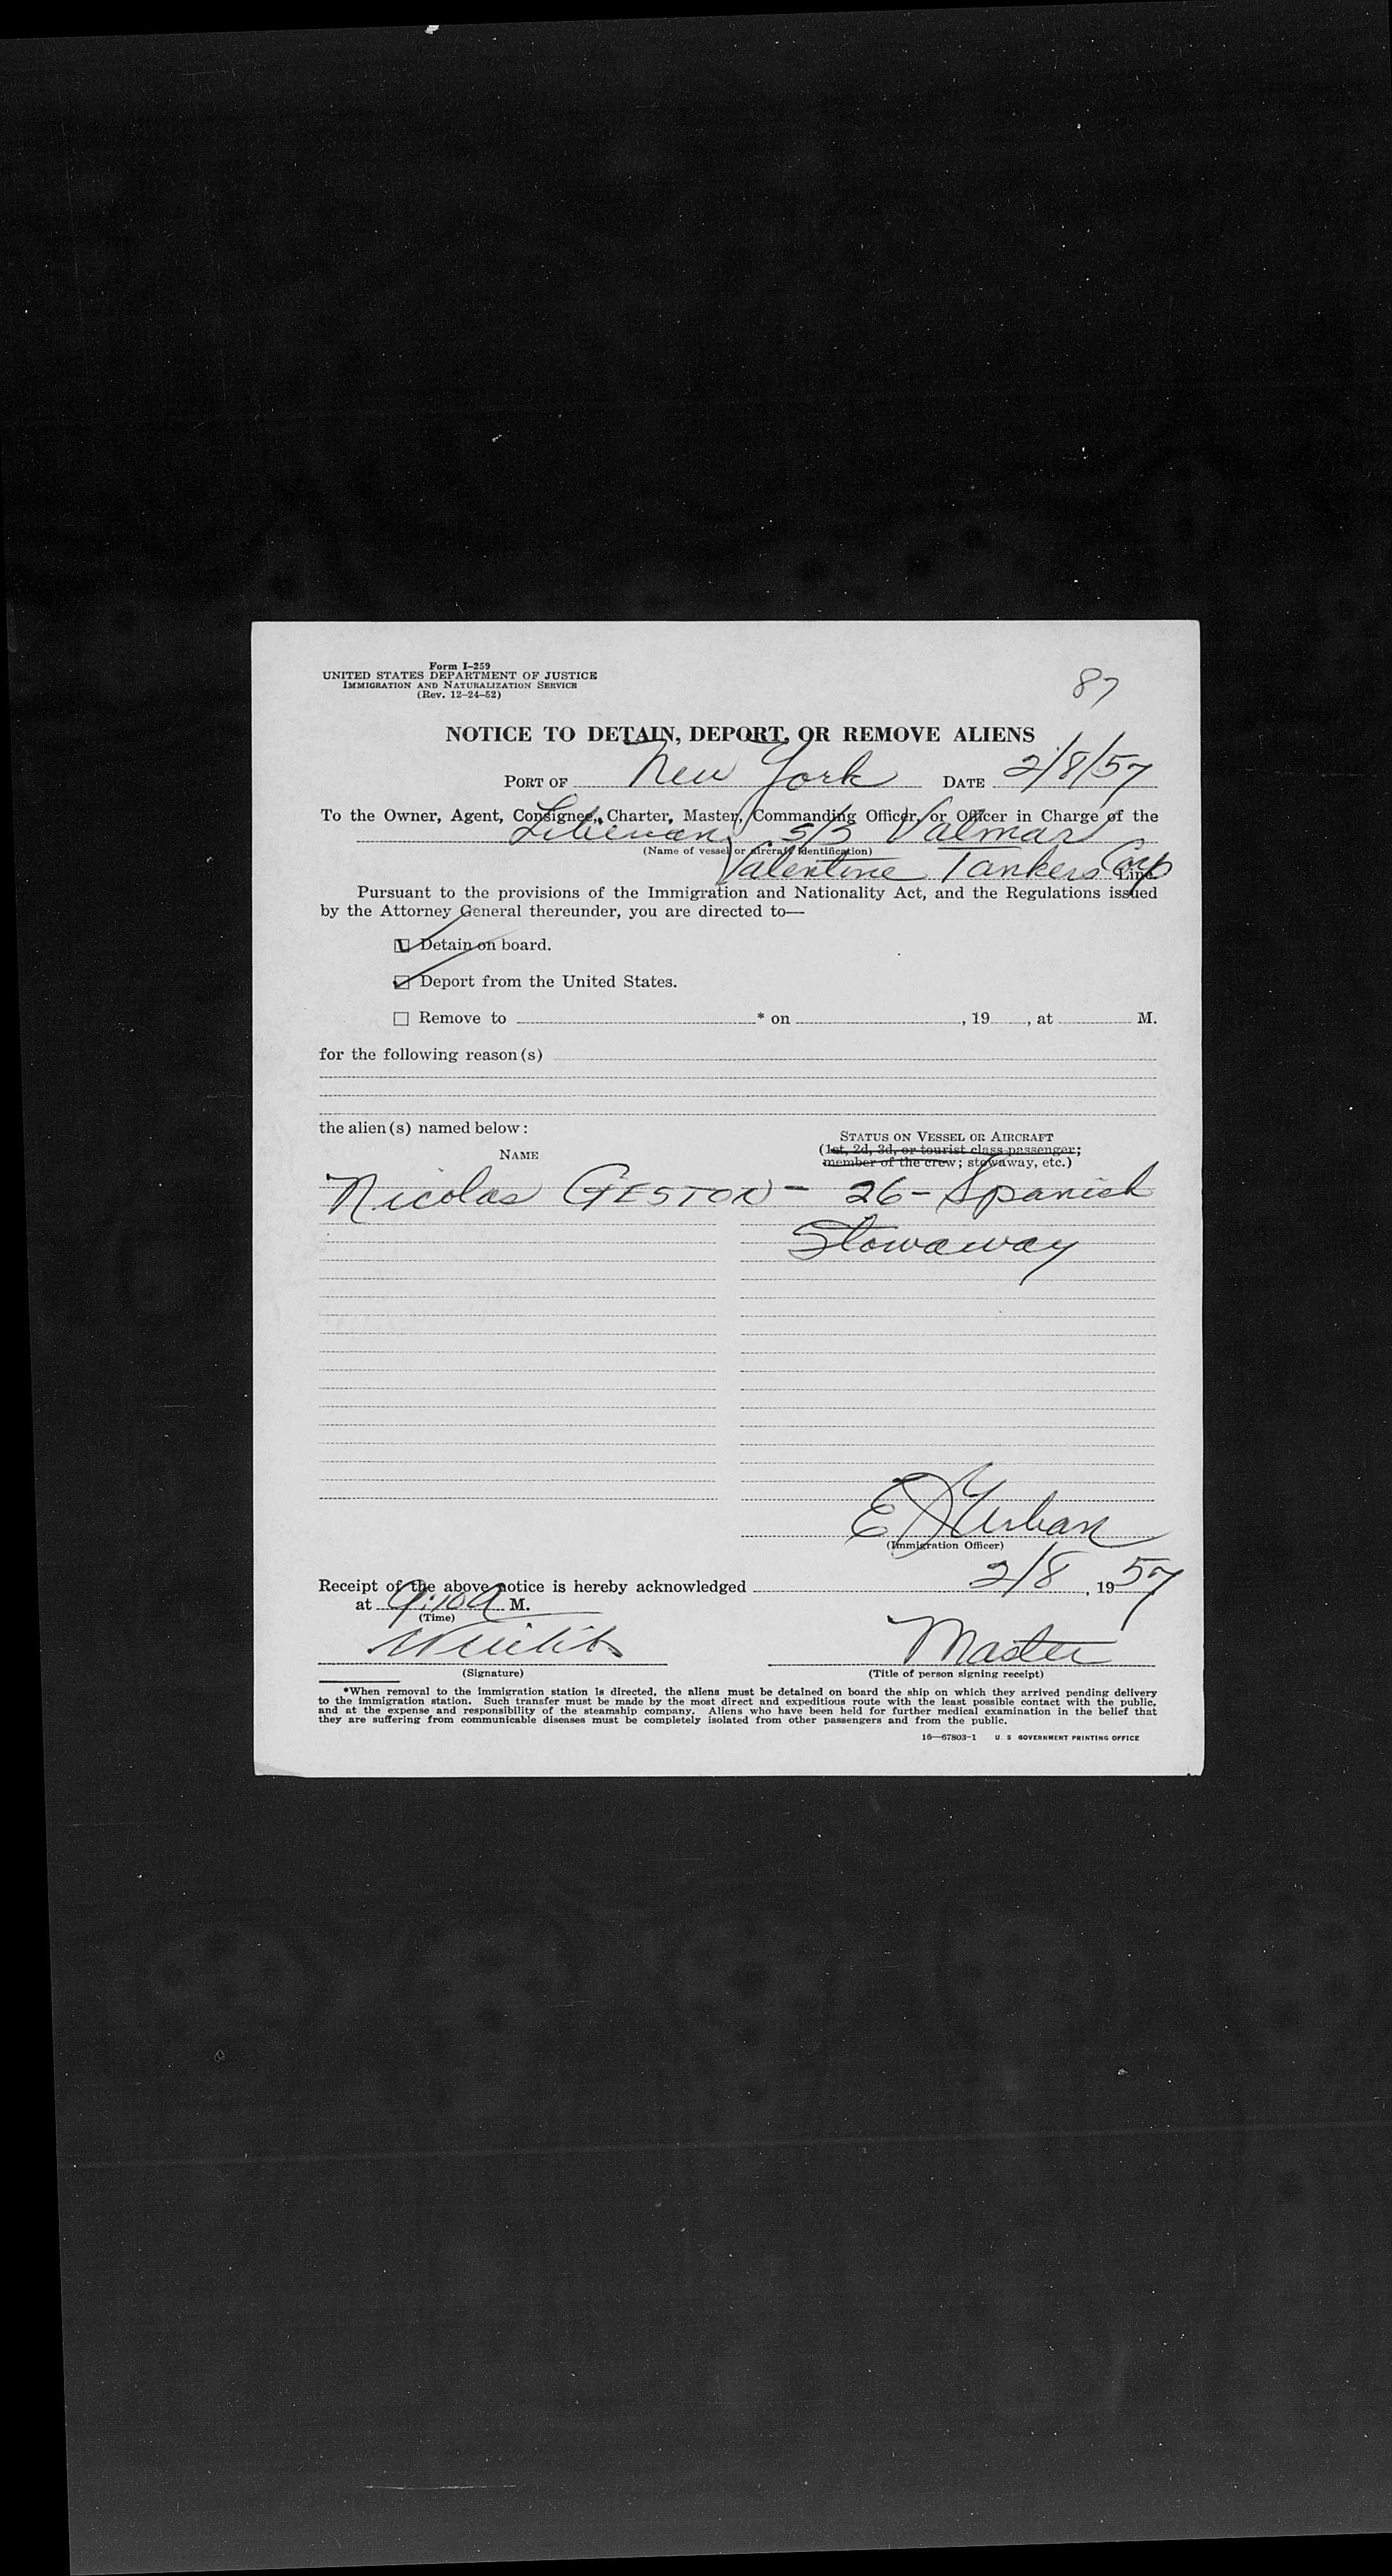 Form I-259
UNITED STATES DEPARTMENT OF JUSTICE
IMMIGRATION AND NATURALIZATION SERVICE
(Rev. 12-24-52)
87
NOTICE TO DETAIN, DEPORT, OR REMOVE ALIENS
PORT OF New York DATE 2/8/57
To the Owner, Agent, Consignee, Charter, Master, Commanding Officer, or Officer in Charge of the
Liberian S/S Valmar
(Name of vessel or aircraft identification)
Valentine Tankers Corp Line
Pursuant to the provisions of the Immigration and Nationality Act, and the Regulations issued
by the Attorney General thereunder, you are directed to—
Detain on board.
Deport from the United States.
Remove to * on , 19 , at M.
for the following reason(s)
the alien(s) named below:
NAME
STATUS ON VESSEL OR AIRCRAFT
(1st, 2d, 3d, or tourist class passenger;
member of the crew; stowaway, etc.)
Nicolas GESTON - 26 - Spanish
Stowaway
E J Urban
(Immigration Officer)
Receipt of the above notice is hereby acknowledged 2/8, 1957
at 9:10 A M.
(Time)
Master
(Signature) (Title of person signing receipt)
*When removal to the immigration station is directed, the aliens must be detained on board the ship on which they arrived pending delivery
to the immigration station. Such transfer must be made by the most direct and expeditious route with the least possible contact with the public,
and at the expense and responsibility of the steamship company. Aliens who have been held for further medical examination in the belief that
they are suffering from communicable diseases must be completely isolated from other passengers and from the public.
16—67803-1 U S GOVERNMENT PRINTING OFFICE